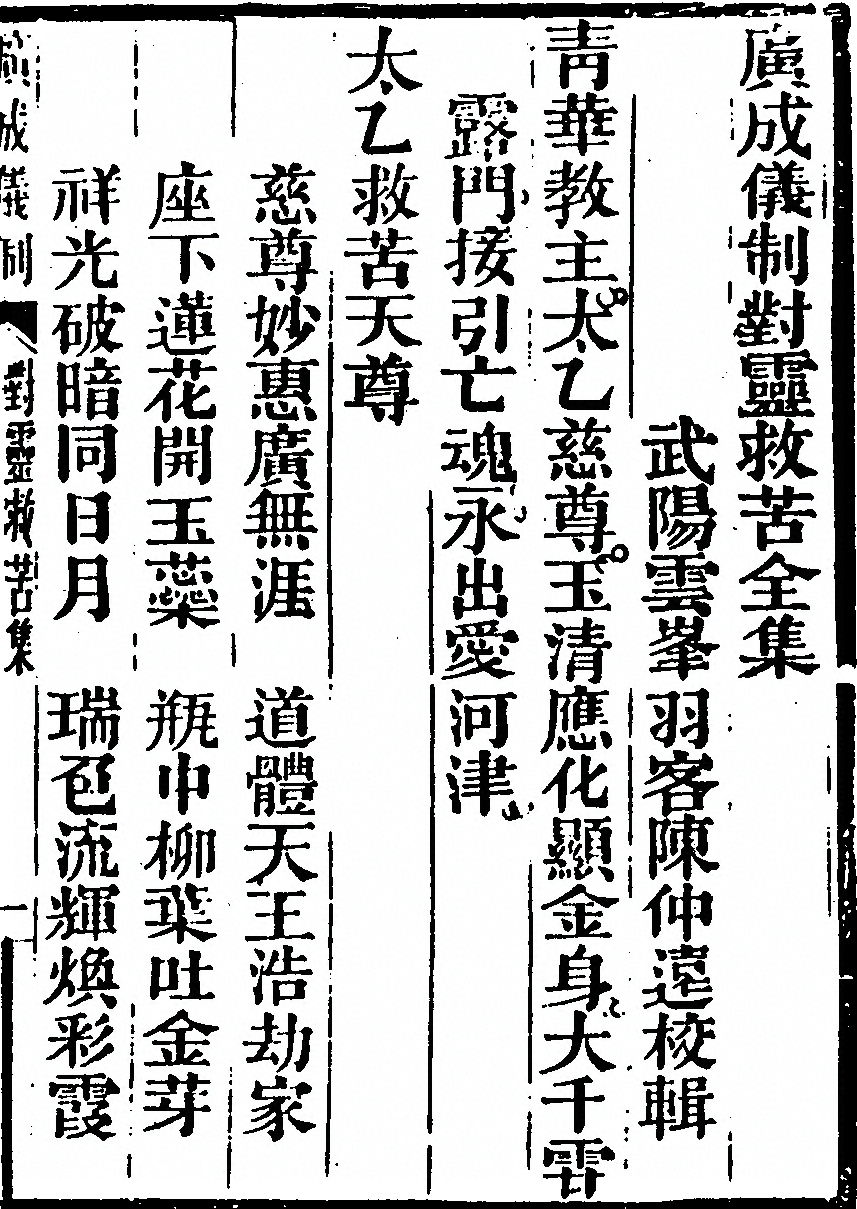 廣成儀制對靈救苦全集
武陽雲峯羽客陳仲遠校輯
青華教主太乙慈尊玉清應化顯金身大千雲
露門接引亡魂永出愛河津
太乙救苦天尊
慈尊妙惠廣無涯　道體天王浩劫家
座下蓮花開玉蘂　瓶中柳葉吐金芽
祥光破暗同日月　瑞色流輝煥彩霞
廣成儀制　對靈救苦集　一